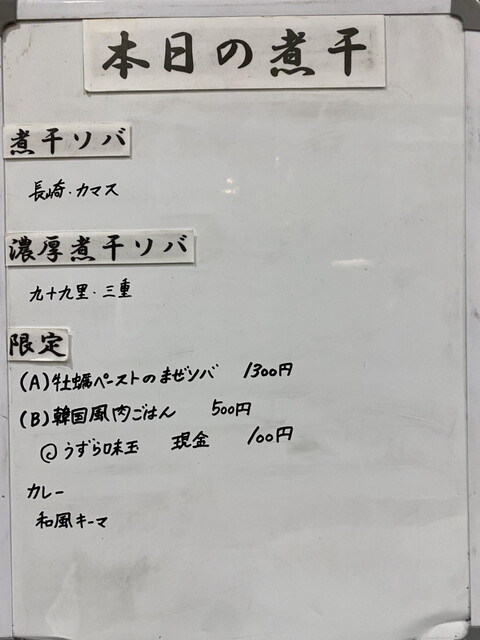 本日の煮干
煮干ソバ
長崎・カマス
濃厚煮干ソバ
九十九里・三重
限定
(A)牡蠣ペーストのまぜソバ 1300円
(B)韓国風肉ごはん 500円
@うずら味玉 現金 100円
カレー
和風キーマ